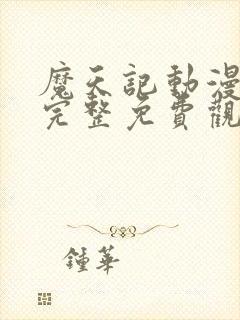 魔天記動漫
完整免費觀
鍾華